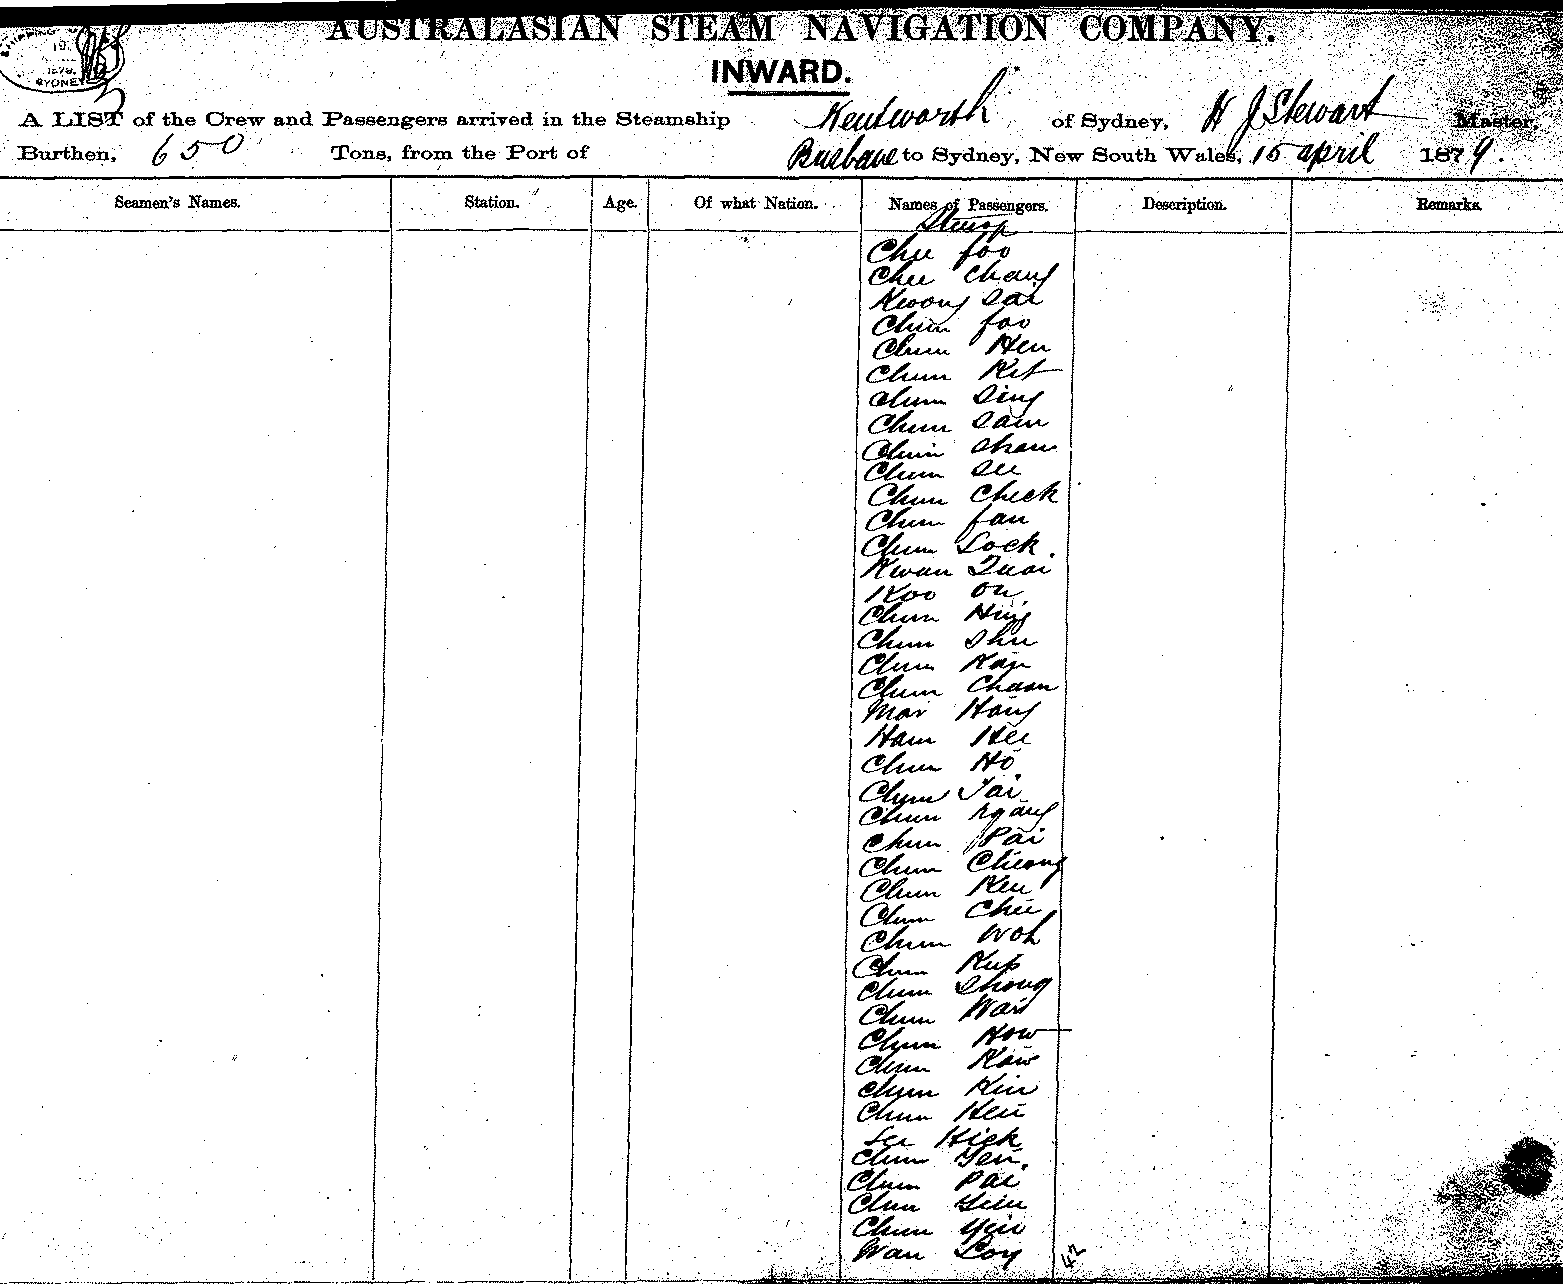 AUSTRALASIAN STEAM NAVIGATION COMPANY.
INWARD.
19
1879.
SYDNEY
A LIST of the Crew and Passengers arrived in the Steamship Kentworth of Sydney, H J Stewart Master,
Burthen, 650 Tons, from the Port of Brisbane to Sydney, New South Wales, 15 april 1879.
Seamen's Names. Station. Age. Of what Nation. Names of Passengers. Description. Remarks.
Chee foo
Chee Chang
Kwong Sai
Chun foo
Chun Hen
Chun Kit
Chun Sing
Chun Sam
Chun Shan
Chun See
Chun Check
Chun fan
Chun Lock.
Kwan Quai
Koo On
Chun Hing
Chun Shu
Chun Kap
Chun Chaon
Mar Hang
Ham Hee
Chun Ho
Chun Tai
Chun Ngang
Chun Pai
Chun Cheong
Chun Keu
Chun Chee
Chun Woh
Chun Kup
Chun Shong
Chun Wai
Chun How
Chun Kaw
Chun Kin
Chun Hen
See Hick
Chun Yen.
Chun Pai
Chun
Chun Yin
Wan Loy 42